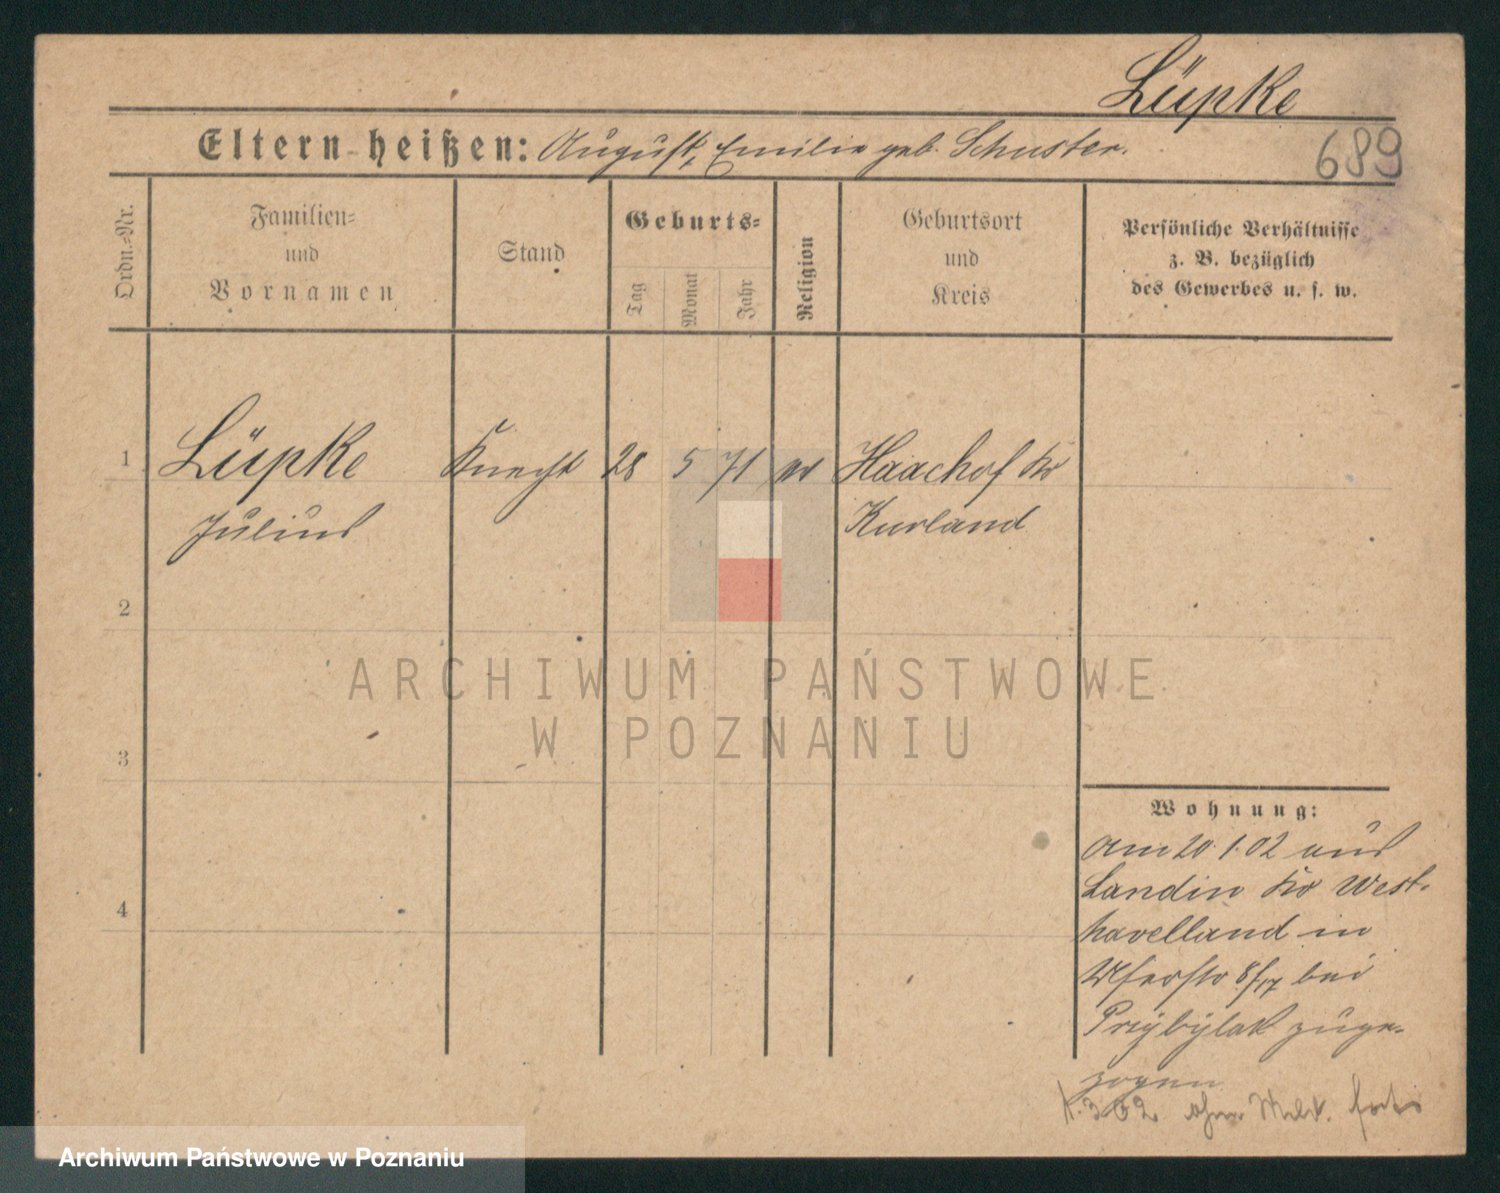 Lüpke
Eltern heißen: August, Emilie geb. Schuster.
689
Ordn.=Nr.
Familien=
und
Vornamen
Stand
Geburts=
Tag
Monat
Jahr
Religion
Geburtsort
und
Kreis
Persönliche Verhältnisse
z. B. bezüglich
des Gewerbes u. s. w.
1 Lüpke Knecht 28 5 71 ev Haachof Kr
Julius Kurland
2
3
4
Wohnung:
Am 20.1.02 aus
Landin Kr West-
havelland in
Uferstr 8/17 bei
Przybylak zuge-
zogen
1.3.02 ohne Meld. fort
ARCHIWUM PAŃSTWOWE
W POZNANIU
Archiwum Państwowe w Poznaniu